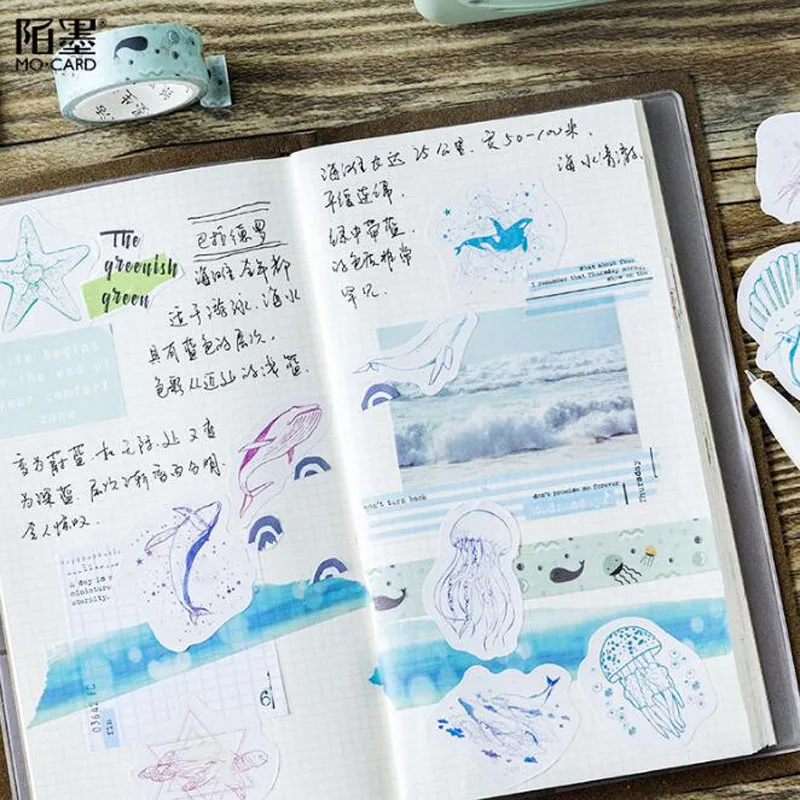 陌墨®
MO·CARD
The
greenish
green
巴菲德罗
海滩全年都
适于游泳.海水
具有蓝色的层次,
色彩从近处的浅蓝
变为蔚蓝.和无际处又变
为深蓝.层次渐序而分明.
令人惊叹.
life begins
at the end of
your comfort
zone
A day is a
miniature
eternity.
03642 FC
6
海滩长达25公里.宽50-100米.
海水清澈.
平缓连绵
绿中带蓝.
的色彩非常
罕见.
What about Thus
I remember that Thursday morng,
show on the
don't turn back
don't promise me forever
Thursday